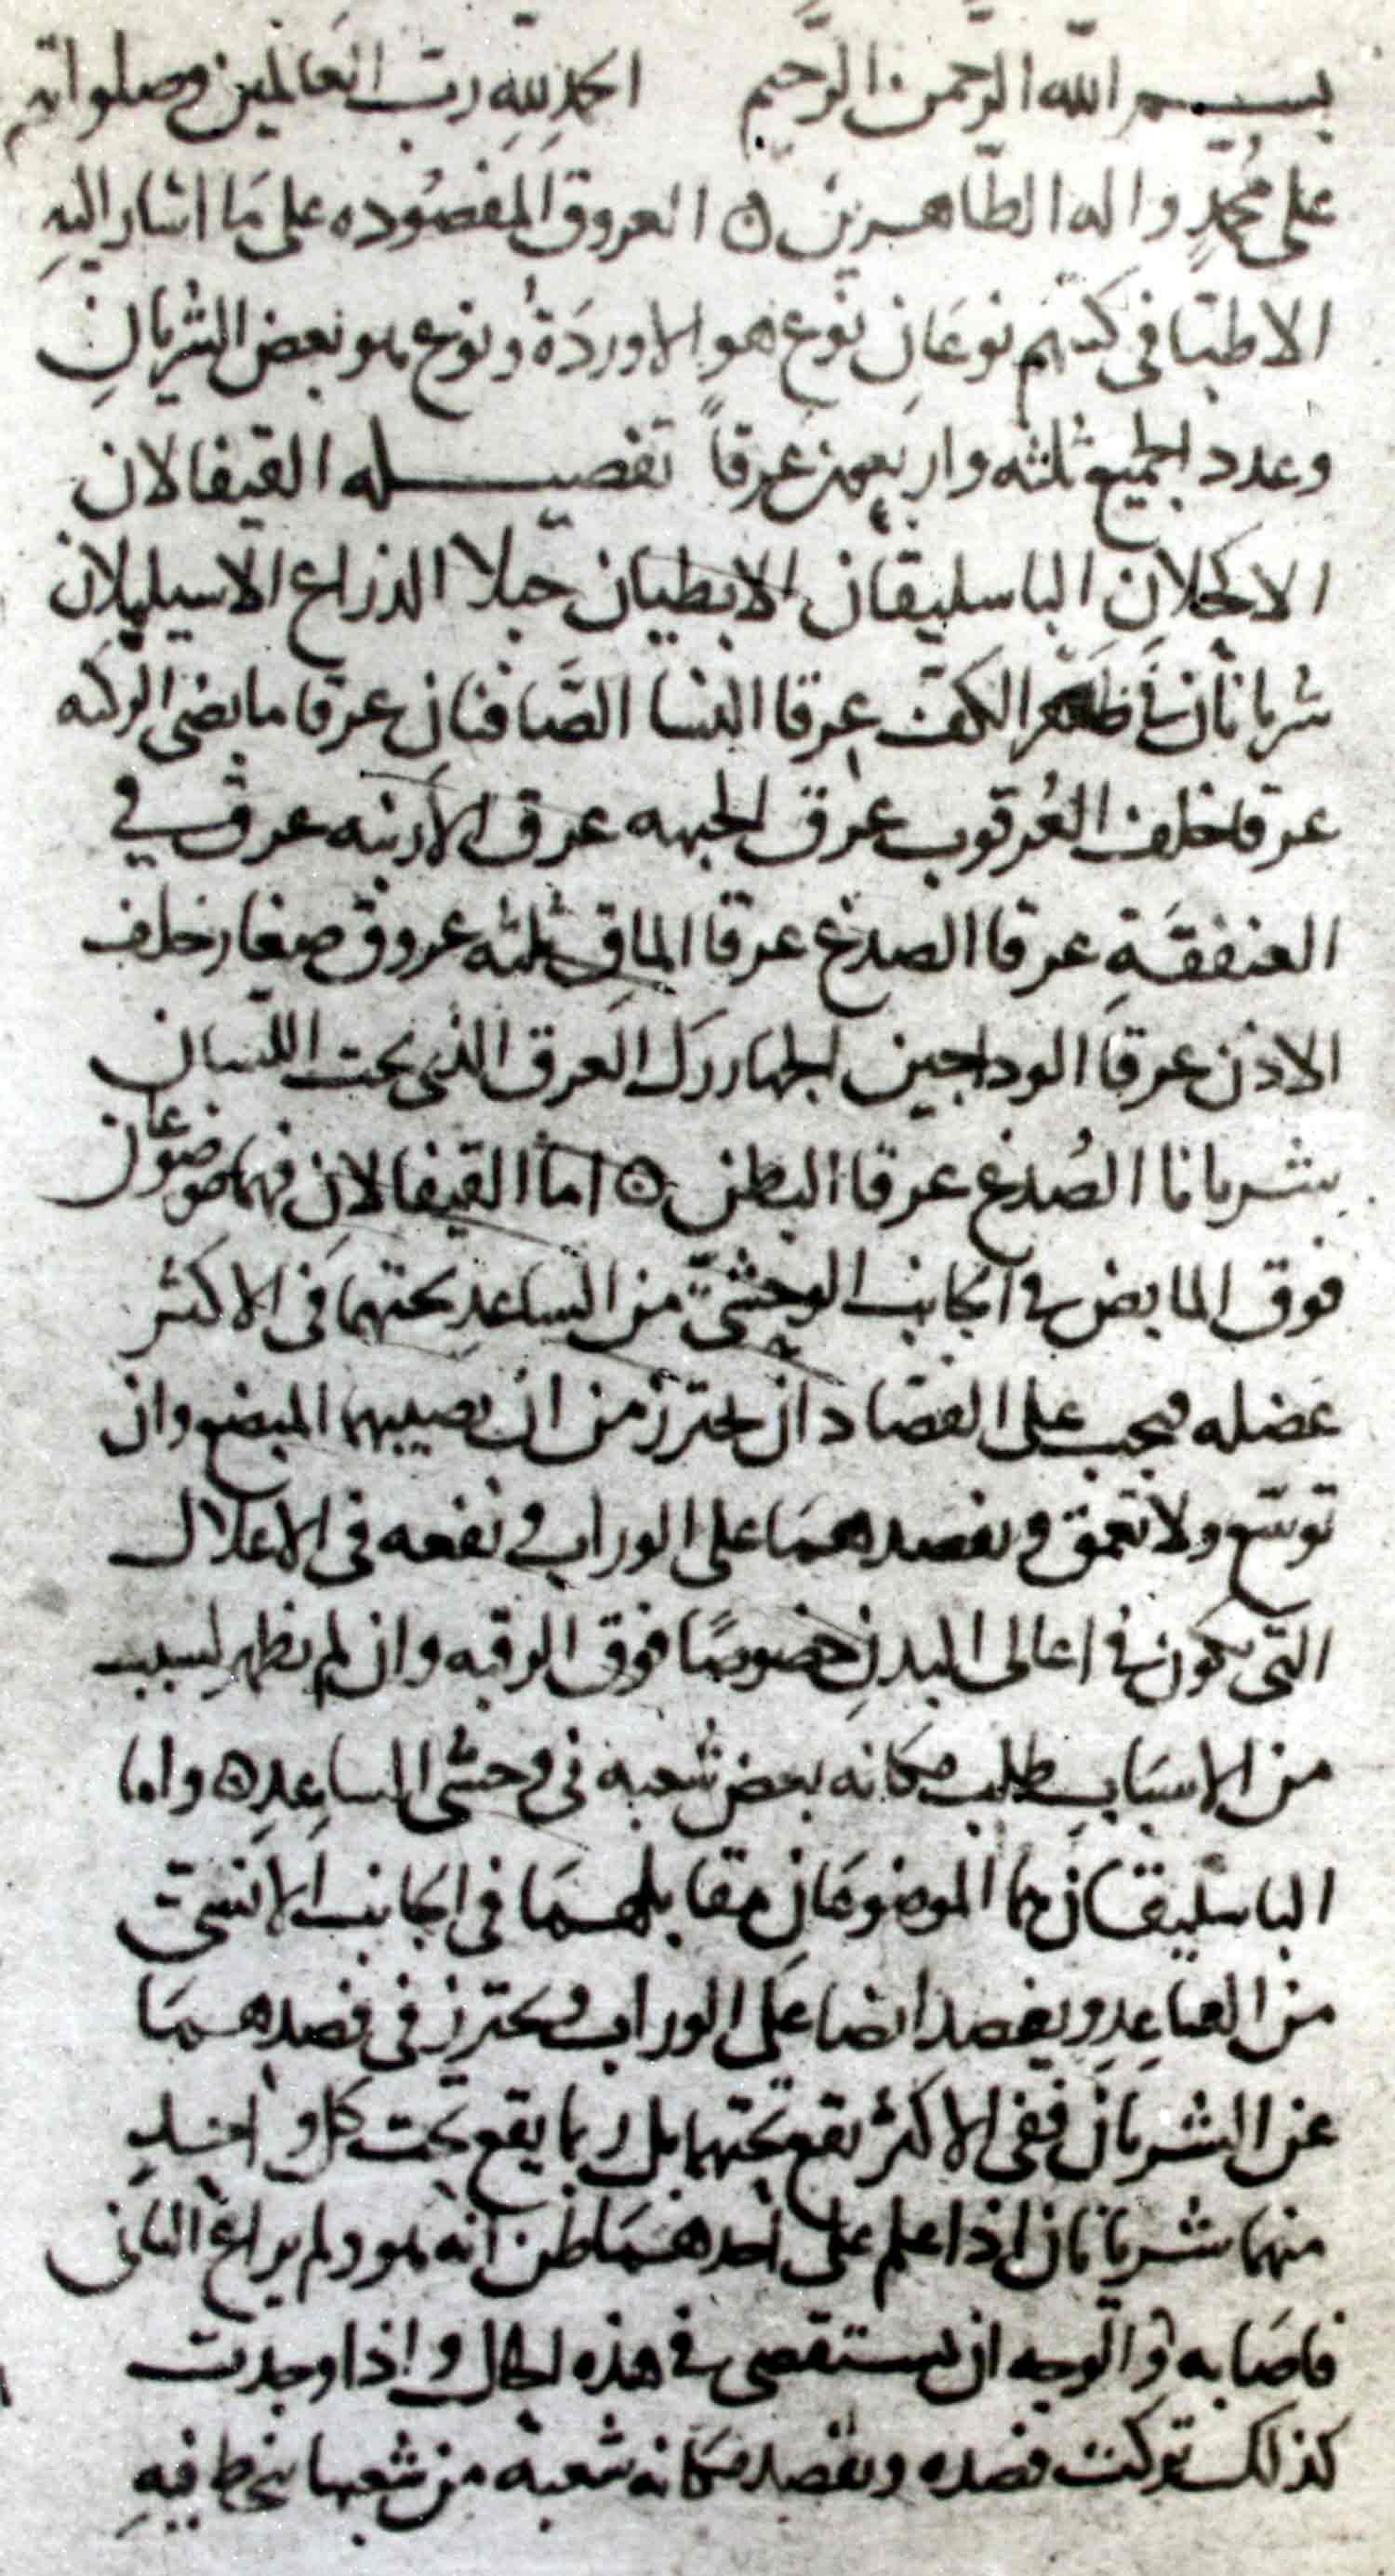 بسم الله الرحمن الرحيم الحمد لله رب العالمين وصلواته
على محمد واله الطاهرين ه العروق المفصوده على ما اشار اليه
الاطبا فى كتبهم نوعان نوع هو الاوردة ونوع هو بعض الشريان
وعدد الجميع ثلثه واربعون عرقا تفصيله القيفالان
الاكحلان الباسليقان الابطيان حبلا الذراع الاسيليلان
شريانان فى ظهر الكف عرقا النسا الصافنان عرقا مابضى الركبه
عرقا خلف العرقوب عرق الجبهه عرق الأرنبه عرق في
العنفقة عرقا الصدغ عرقا الماق ثلثه عروق صغار خلف
الاذن عرقا الوداجين الجهاررك العرق الذى تحت اللسان
شريانا الصدغ عرقا البطن ه اما القيفالان فهما موضوعان
فوق المابض فى الجانب الوحشي من الساعد تحتهما فى الاكثر
عضله فيجب على الفصاد ان يحترز من ان يصيبهما المبضع وان
توسع ولا تعمق و يفصدهما على الوراب و نفعه فى الاعلال
التى يكون فى اعالى البدن خصوصا فوق الرقبه وان لم يظهر لسبب
من الاسباب طلب مكانه بعض شعبه فى وحشى الساعد ه واما
الباسليقان هما الموضوعان مقابلهما فى الجانب الانسى
من الساعد ويفصد ايضا على الوراب ويحترز فى فصدهما
عن الشريان ففى الاكثر يقع تحتهما بل ربما يقع تحت كل واحد
منهما شريانان اذا علم على احدهما ظن انه هو ولم يراع الثانى
فاصابه والوجه ان يستقصى فى هذه الحال واذا وجدت
كذلك تركت فصده وتفصد مكانه شعبه من شعبها ينحط فيه